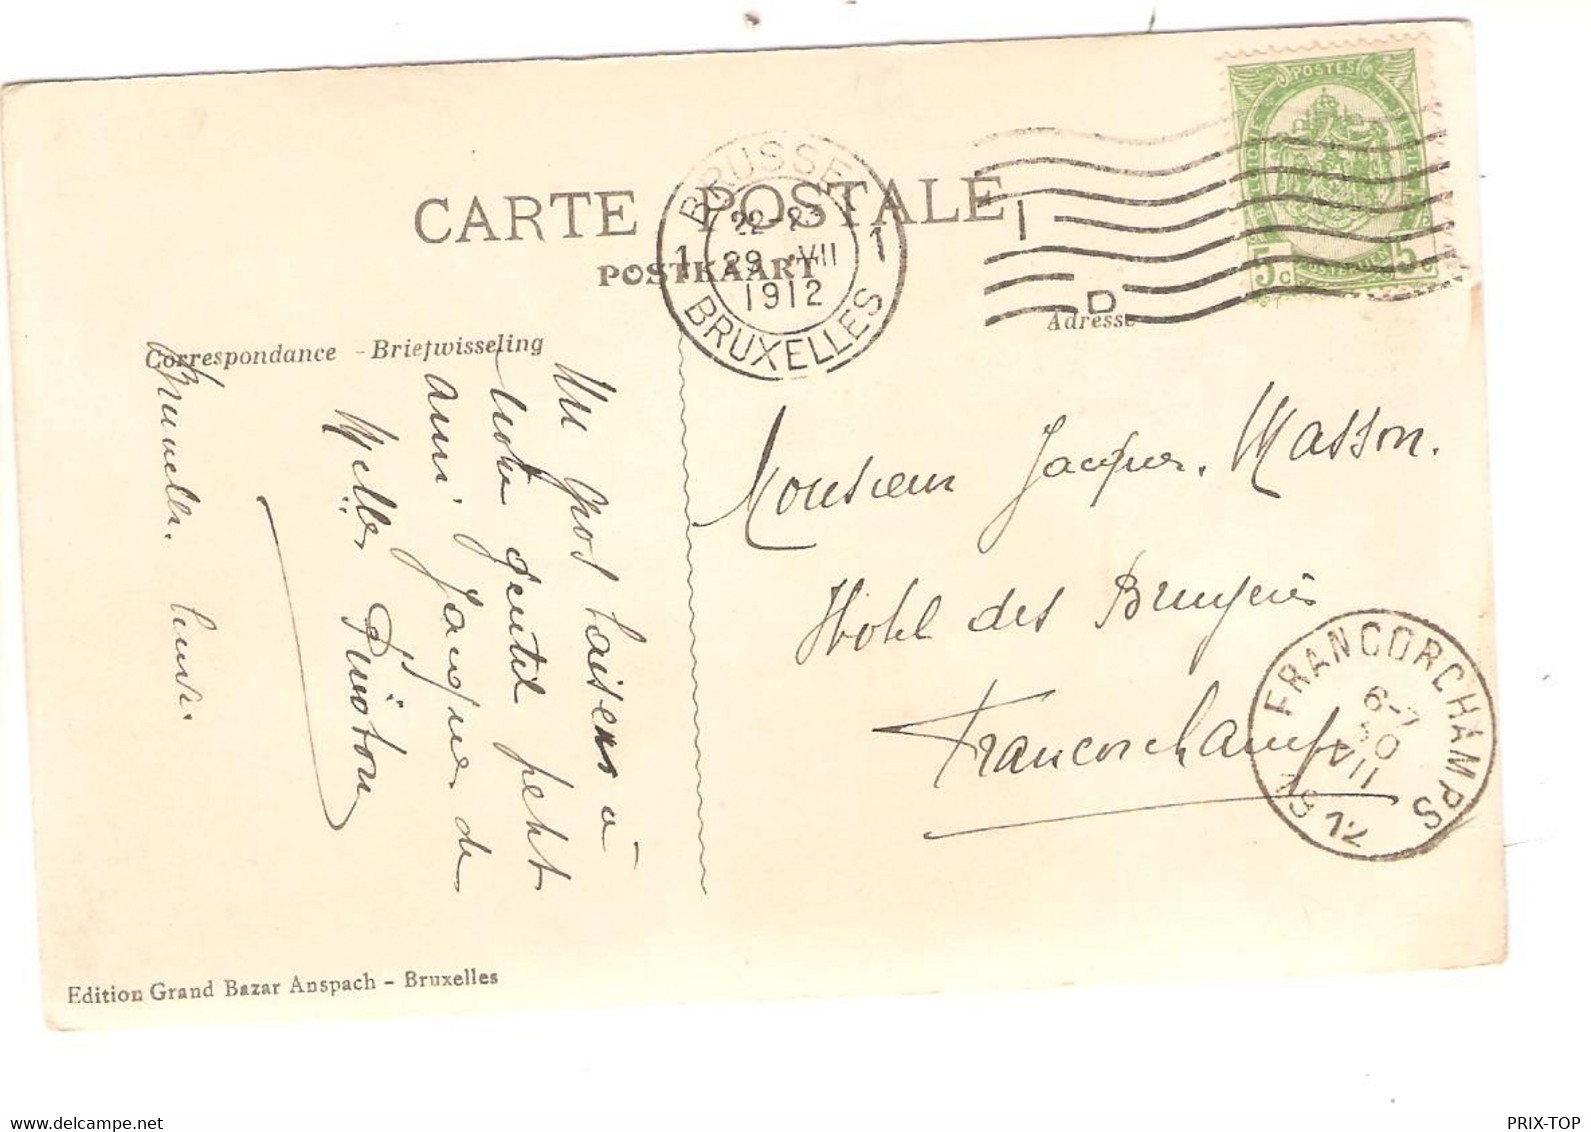 CARTE POSTALE
POSTKAART
Correspondance - Briefwisseling
Adresse
BRUSSEL
22-23
1 29 VII 1
1912
BRUXELLES
I
D
POSTES
BELGIQUE
5c 5c
POSTERIJEN
Un gros baiser à
notre gentil petit
ami Jacques de
Melles
Bruxelles. Lundi.
Monsieur Jacques. Masson.
Hôtel des Bruyères
Francorchamps
FRANCORCHAMPS
6-7
30
VII
1912
Edition Grand Bazar Anspach - Bruxelles
www.delcampe.net
PRIX-TOP